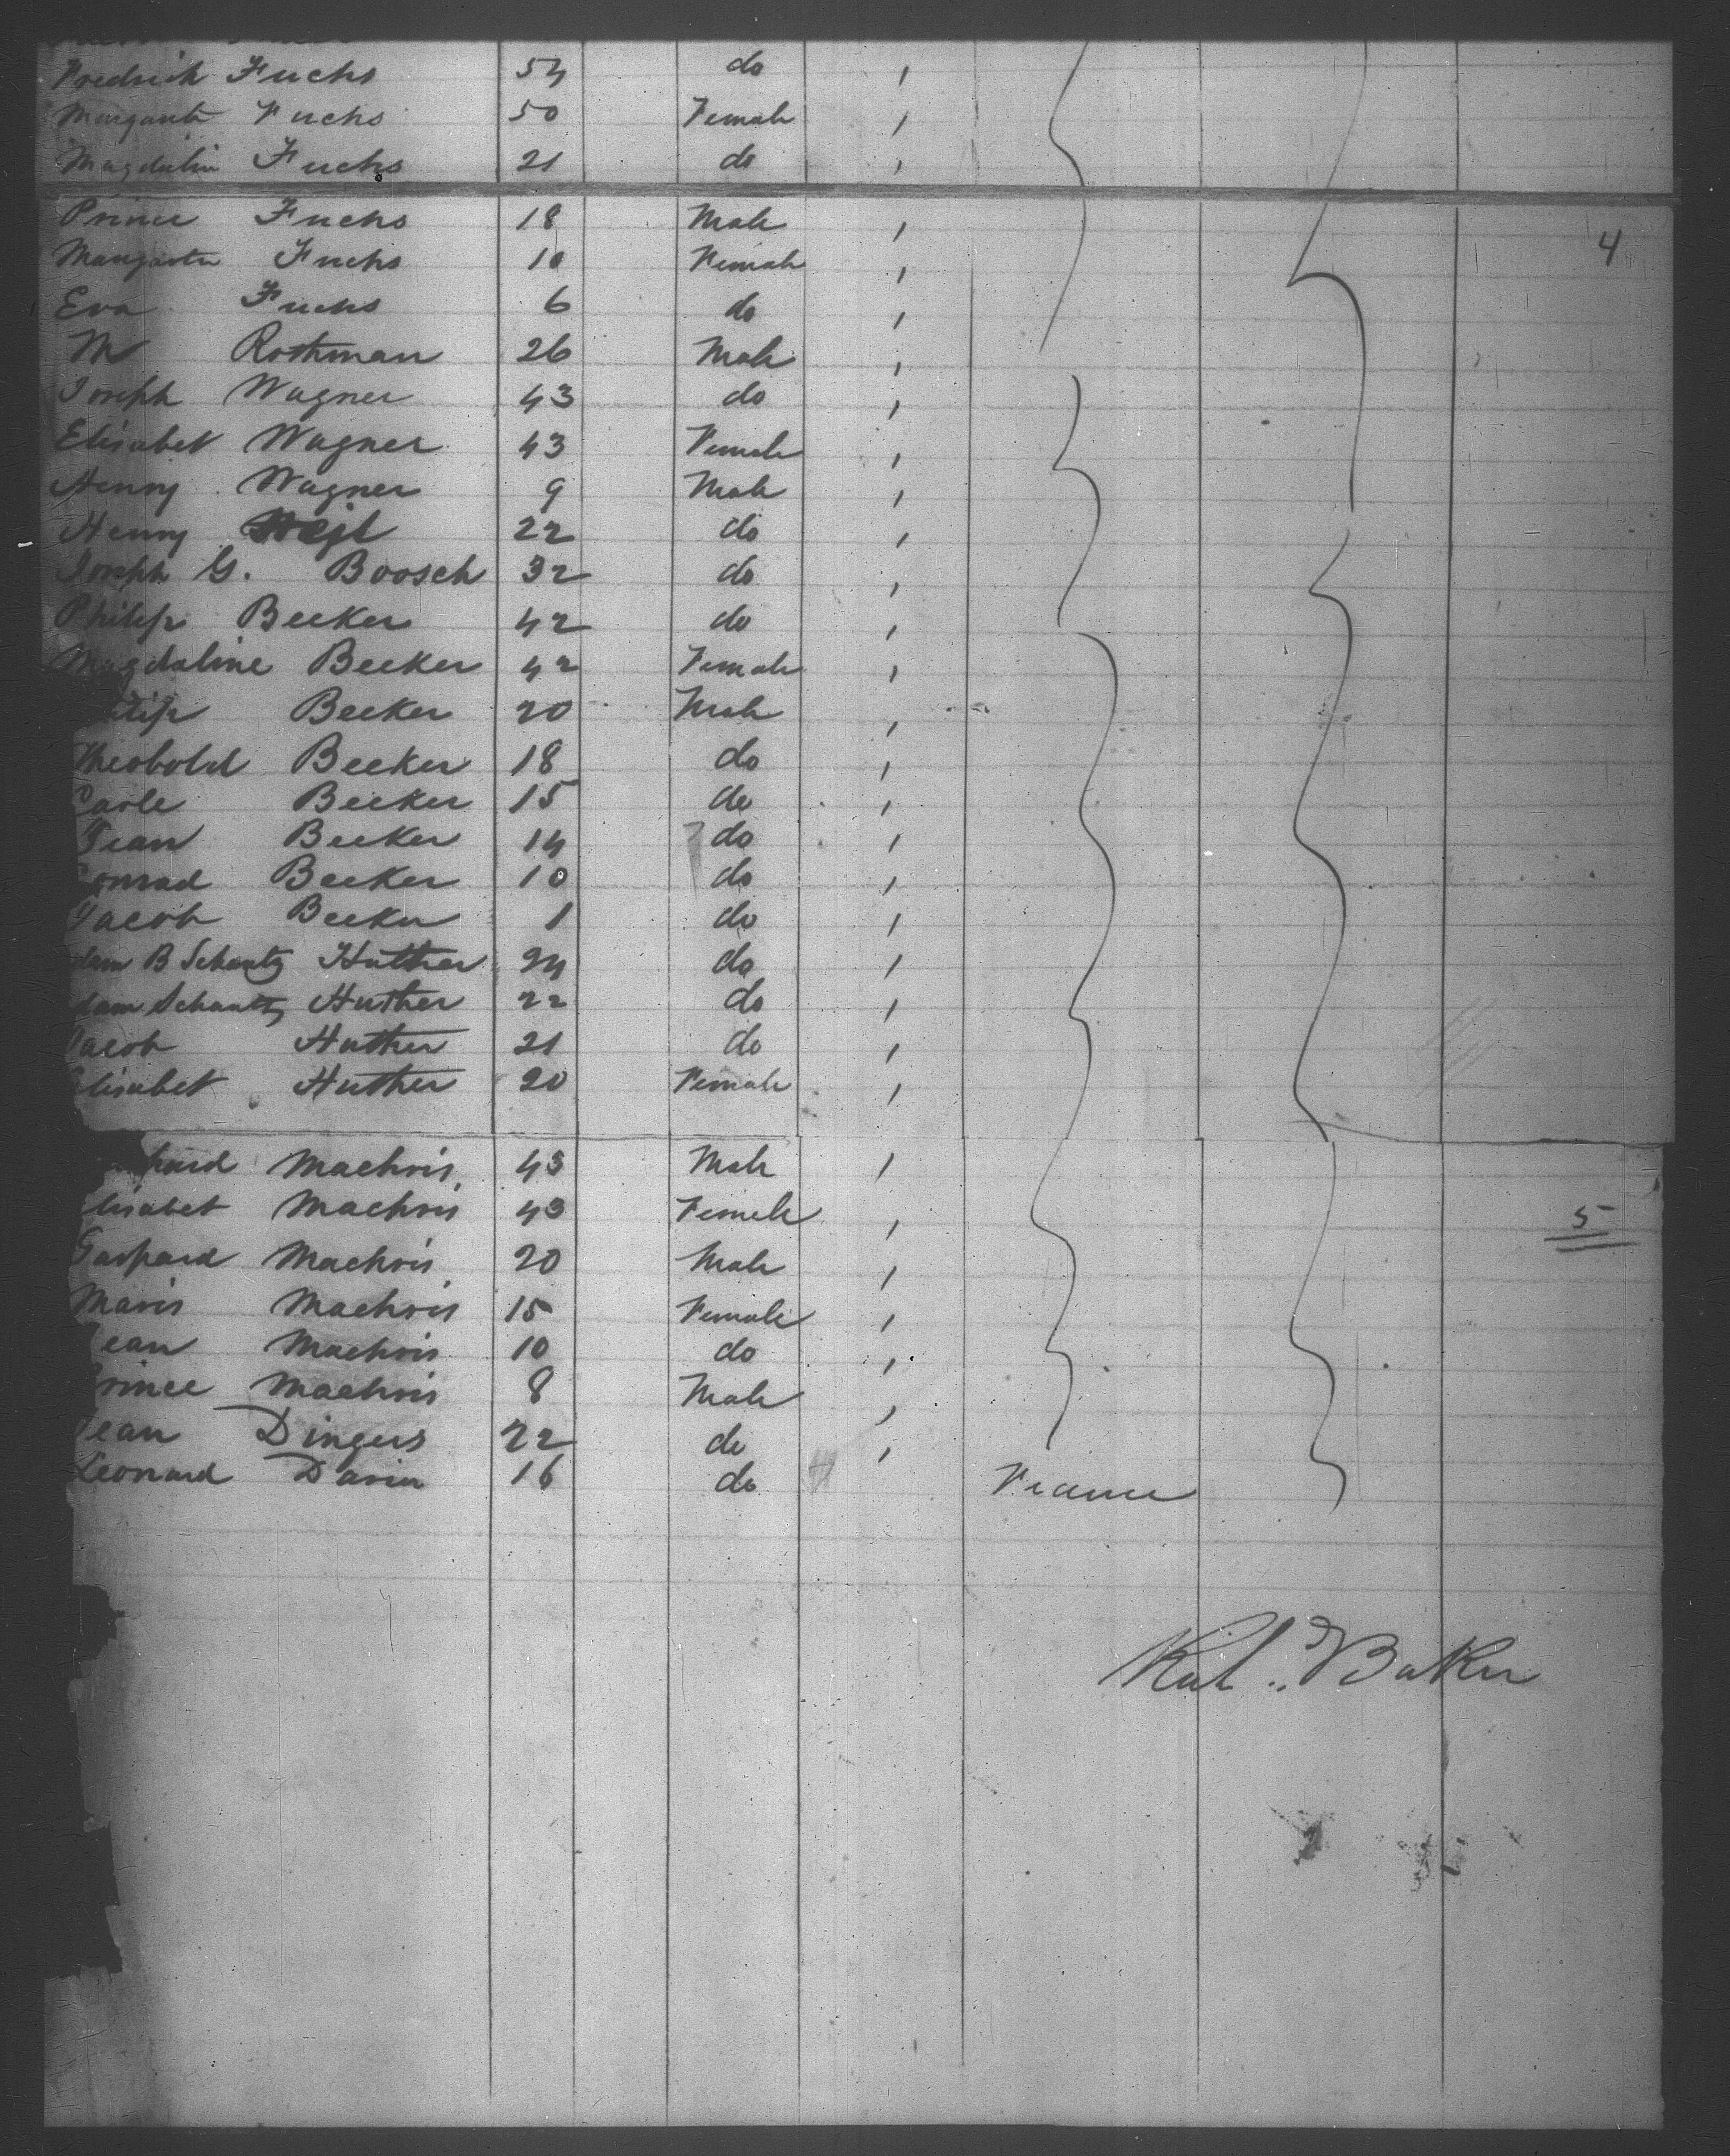 Fredrich Fuchs 54 do ,
Margaret Fuchs 50 Female ,
Magdalin Fuchs 21 do ,
Prince Fuchs 18 Male ,
Margaretn Fuchs 10 Female , 4
Eva Fuchs 6 do ,
M Rothman 26 Male ,
Joseph Wagner 43 do ,
Elisabet Wagner 43 Female ,
Henry Wagner 9 Male ,
Henry 22 do ,
Joseph G. Boosch 32 do ,
Philip Becker 42 do ,
Magdaline Becker 42 Female ,
Becker 20 Male ,
Theobold Becker 18 do ,
Carle Becker 15 do ,
Jean Becker 14 do ,
Conrad Becker 10 do ,
Jacob Becker 1 do ,
dam B Schantz Huther 24 do ,
dam Schantz Huther 22 do ,
Jacob Huther 21 do ,
Elisabet Huther 20 Female ,
Machris 43 Male ,
Elisabet Machris 43 Female , 5
Gaspard Machris 20 Male ,
Maris Machris 15 Female ,
Jean Machris 10 do ,
Prince Machris 8 Male ,
Jean Dingers 22 do ,
Leonard 16 do France
Baker